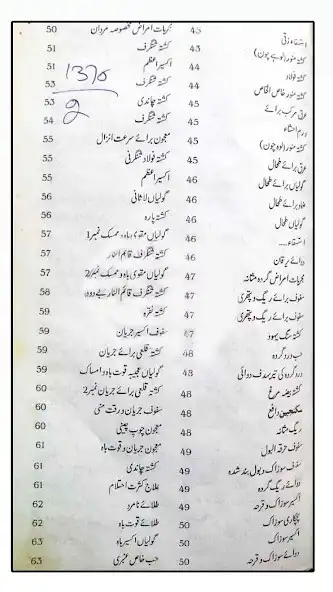 استسقاء زقی 43
کشتہ منور (لوہے چون) 43
کشتہ فولاد 44
کشتہ منور خاص الخاص 44
عرق مرکب برائے 44
ورم احشاء
کشتہ منور (لوہ چون) 45
عرق برائے طحال 45
گولیاں برائے طحال 45
ضماد برائے طحال 46
گولیاں طحال 46
استسقاء.... 46
دوائے یرقان 46
مجربات امراض گردہ مثانہ 47
سفوف برائے ریگ و پتھری 47
سفوف برائے ریگ و پتھری 47
کشتہ سنگ یہود 47
حب درد گردہ 48
درد گردہ کی تیر بہدف دوائی 48
کشتہ بیضہ مرغ 48
سکنجبین دافع 48
ریگ مثانہ
سفوف حرقۃ البول 49
سفوف سوزاک و بول بند شدہ 49
دوائے ریگ گردہ 49
اکسیر سوزاک و قرحہ 49
پچکاری سوزاک 50
اکسیر سوزاک 50
دوائے سوزاک و قرحہ 50
مجربات امراض مخصوصہ مردان 50
کشتہ شنگرف 51
اکسیر اعظم 51
کشتہ شنگرف 53
کشتہ چاندی 53
کشتہ شنگرف 54
معجون برائے سرعت انزال 55
کشتہ فولاد شنگرفی 55
اکسیر اعظم 55
گولیاں لاثانی 56
کشتہ پارہ 56
گولیاں مقوی باہ و ممسک نمبر1 57
کشتہ شنگرف قائم النار 57
گولیاں مقوی باہ و ممسک نمبر2 57
کشتہ شنگرف قائم النار بے دود 58
کشتہ نقرہ 59
سفوف اکسیر جریان 59
کشتہ قلعی برائے جریان 59
گولیاں عجیبہ قوت باہ و امساک 59
کشتہ قلعی برائے جریان نمبر2 60
سفوف جریان و رقت منی 60
معجون چوب چینی 60
معجون جریان و قوت باہ 61
کشتہ چاندی 61
علاج کثرت احتلام 61
طلائے نامرد 62
طلائے قوت باہ 62
گولیاں اکسیر باہ 63
حب خاص عنبری 63
1370
2